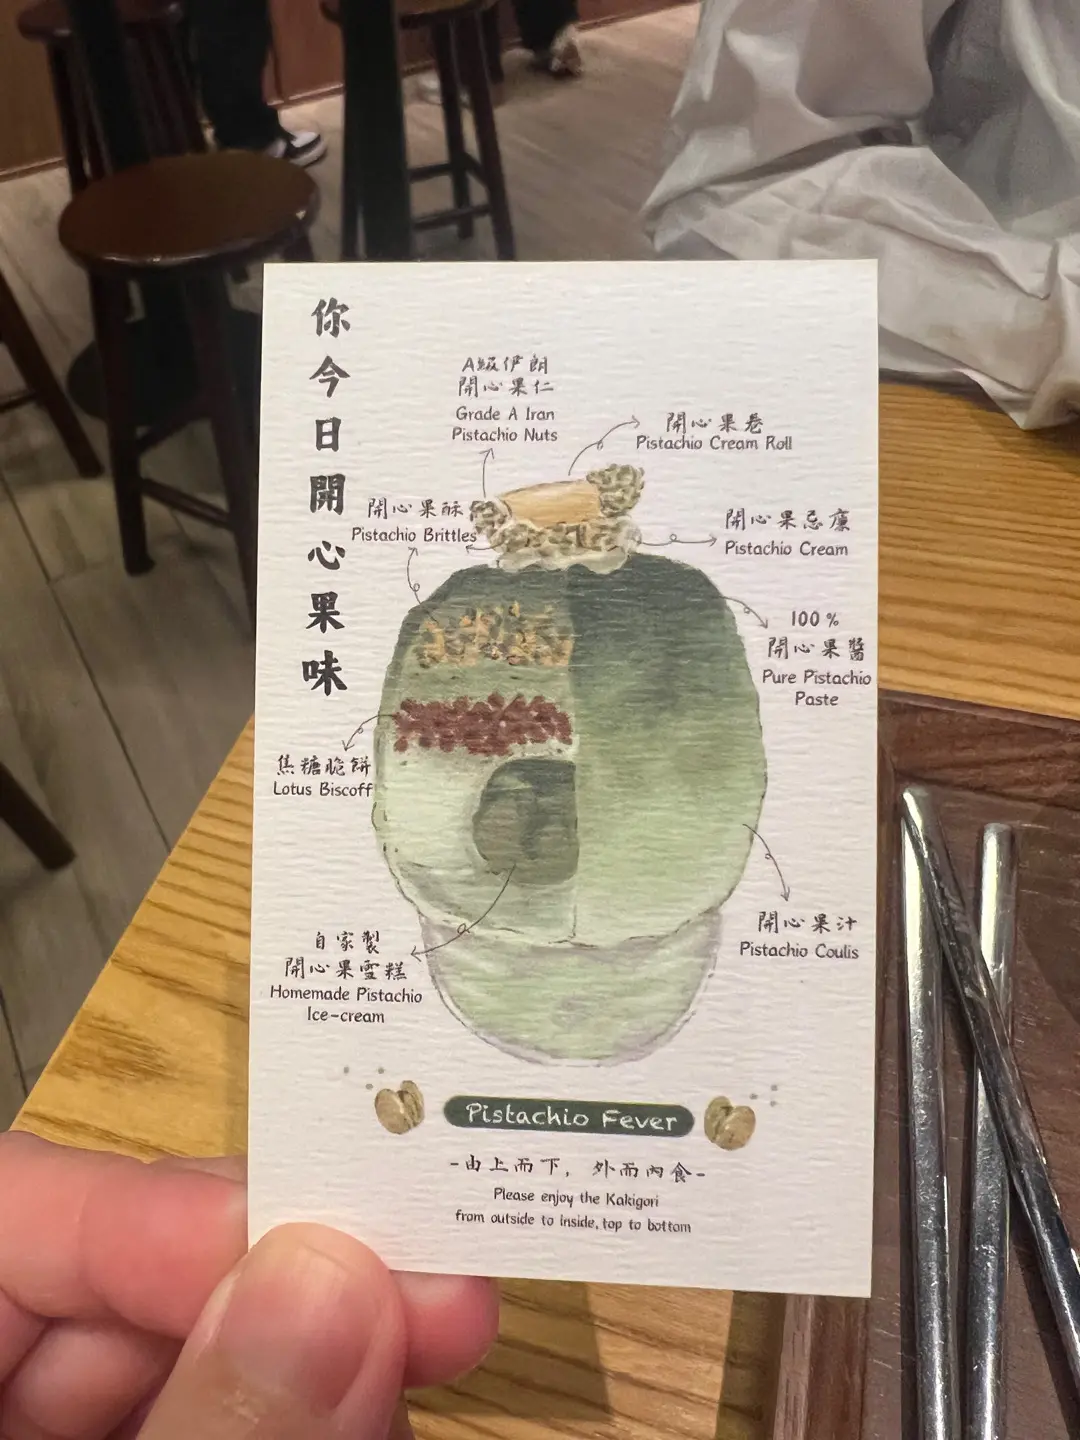 你今日開心果味
A級伊朗
開心果仁
Grade A Iran
Pistachio Nuts
開心果卷
Pistachio Cream Roll
開心果酥
Pistachio Brittles
開心果忌廉
Pistachio Cream
100%
開心果醬
Pure Pistachio
Paste
焦糖脆餅
Lotus Biscoff
開心果汁
Pistachio Coulis
自家製
開心果雪糕
Homemade Pistachio
Ice-cream
Pistachio Fever
-由上而下，外而內食-
Please enjoy the Kakigori
from outside to inside, top to bottom